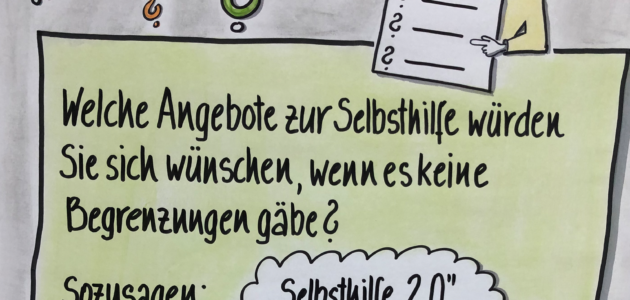 Welche Angebote zur Selbsthilfe würden
Sie sich wünschen, wenn es keine
Begrenzungen gäbe?
Sozusagen: Selbsthilfe 2.0"